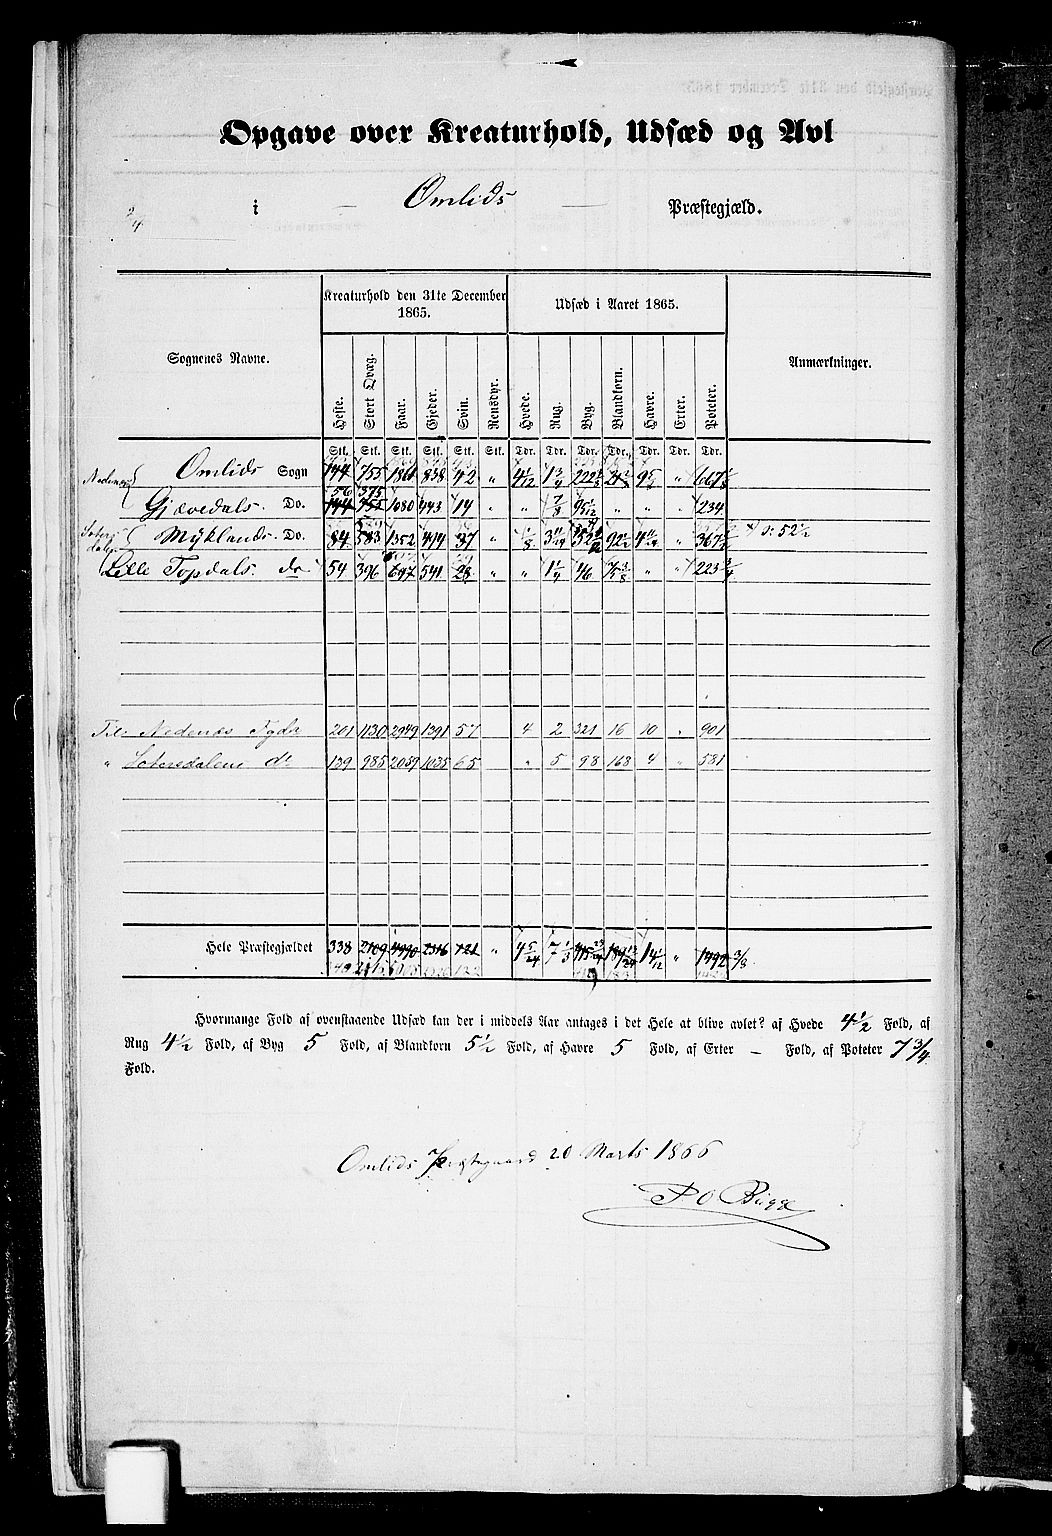 Opgave over Kreaturhold, Udsæd og Avl
i Omlids Præstegjæld.
Kreaturhold den 31te December 1865. Udsæd i Aaret 1865.
Sognenes Navne. Heste. Stort Qvæg. Faar. Gjeder. Svin. Rensdyr. Hvede. Rug. Byg. Blandkorn. Havre. Erter. Poteter. Anmærkninger.
Stk. Stk. Stk. Stk. Stk. Stk. Tdr. Tdr. Tdr. Tdr. Tdr. Tdr. Tdr.
Omlids Sogn 144 755 1861 838 42 "
56 375
Gjævedals Do. 144 755 1080 443 14 " " 7/8 95 5/12 " " " 234
Myklands Do. 84 583 1352 494 37 " 1/8 92 1/2 " 52 1/2
Lille Topdals. do 54 396 697 541 28 " " 1 1/4 46 75 3/8 " " 223 3/4
Til Nedenæs Fgdr 201 1130 2949 1391 57 4 2 321 16 10 " 901
" Sætersdalens dt 139 985 2059 1035 65 " 5 98 168 4 " 581
Hele Præstegjældet 338 2109 4990 2316 121 " 4 5/24 7 1/3 " 1492 3/8
Hvormange Fold af ovenstaaende Udsæd kan der i middels Aar antages i det Hele at blive avlet? af Hvede 4 1/2 Fold, af
Rug 4 1/2 Fold, af Byg 5 Fold, af Blandkorn 5 1/2 Fold, af Havre 5 Fold, af Erter — Fold, af Poteter 7 3/4
Fold.
Omlids Præstegaard 20 Marts 1866
P O Bugge